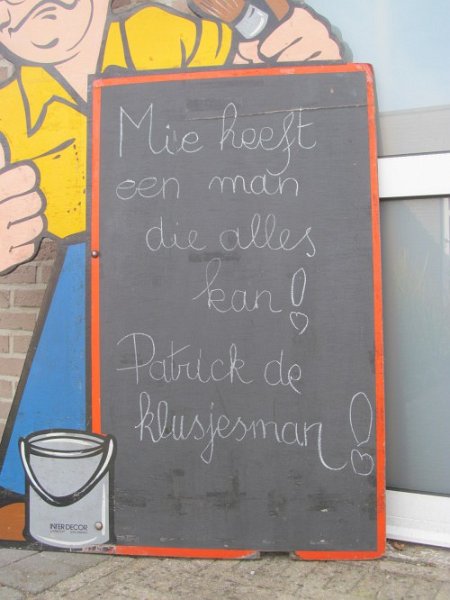 Mie heeft
een man
die alles
kan!
Patrick de
klusjesman!
INTERDECOR